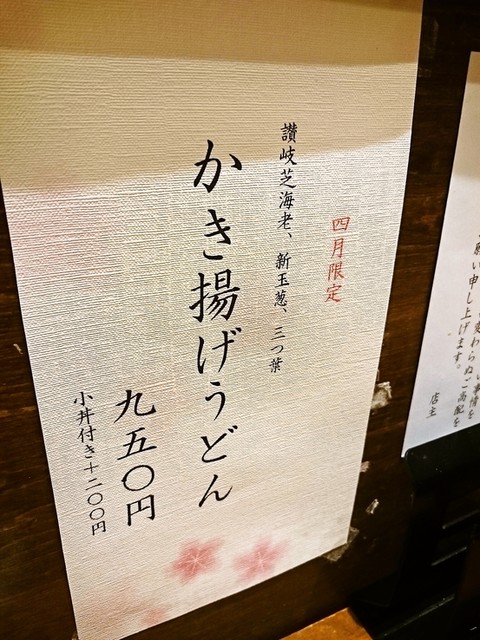 四月限定
讃岐芝海老、新玉葱、三つ葉
かき揚げうどん
九五〇円
小丼付き+二〇〇円
事情を
変わらぬご高配を
願い申し上げます。
店主